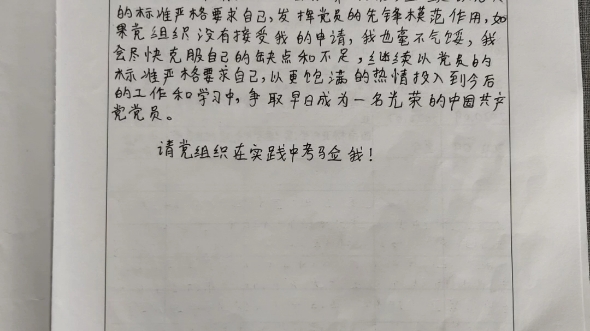 的标准严格要求自己,发挥党员的先锋模范作用,如
果党组织没有接受我的申请,我也毫不气馁,我
会尽快克服自己的缺点和不足,继续以党员的
标准严格要求自己,以更饱满的热情投入到今后
的工作和学习中,争取早日成为一名光荣的中国共产
党党员。
请党组织在实践中考验我!